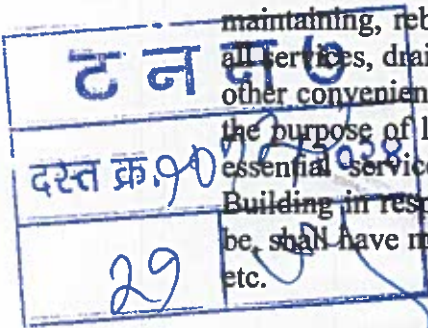 maintaining, reb
ट न न ७
all services, drai
other convenien
the purpose of l
दस्त क्र.
essential service
Building in resp
be, shall have m
etc.